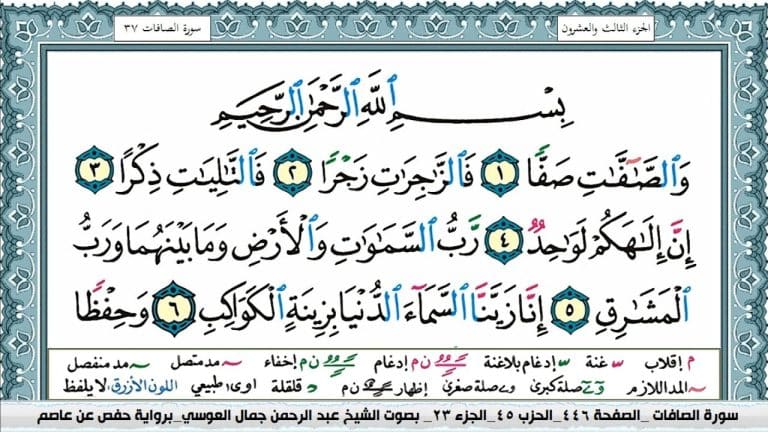 الجزء الثالث والعشرون
سورة الصافات ٣٧
بِسْمِ ٱللَّهِ ٱلرَّحْمَٰنِ ٱلرَّحِيمِ
وَٱلصَّٰٓفَّٰتِ صَفًّا ١ فَٱلزَّٰجِرَٰتِ زَجْرًا ٢ فَٱلتَّٰلِيَٰتِ ذِكْرًا ٣
إِنَّ إِلَٰهَكُمْ لَوَٰحِدٌ ٤ رَّبُّ ٱلسَّمَٰوَٰتِ وَٱلْأَرْضِ وَمَا بَيْنَهُمَا وَرَبُّ
ٱلْمَشَٰرِقِ ٥ إِنَّا زَيَّنَّا ٱلسَّمَآءَ ٱلدُّنْيَا بِزِينَةٍ ٱلْكَوَاكِبِ ٦ وَحِفْظًا
م إقلاب غنة إدغام بلاغنة ن م إدغام ن م إخفاء مد متصل مد منفصل
المد اللازم صلة كبرى صلة صغرى إظهار ن م قلقلة طبيعي اللون الأزرق لا يلفظ
سورة الصافات _الصفحة ٤٤٦_الحزب ٤٥_الجزء ٢٣_ بصوت الشيخ عبد الرحمن جمال العوسي_برواية حفص عن عاصم